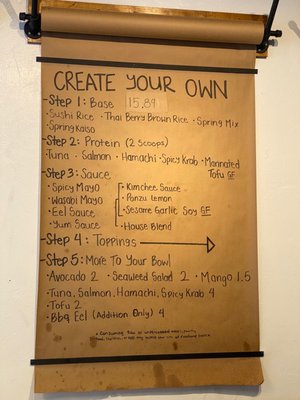 CREATE YOUR OWN
-Step 1: Base 15.89
·Sushi Rice ·Thai Berry Brown Rice ·Spring Mix
·Spring Kaiso
-Step 2: Protein (2 Scoops)
·Tuna ·Salmon ·Hamachi ·Spicy Krab ·Marinated
Tofu GF
-Step 3: Sauce
·Spicy Mayo ·Kimchee Sauce
·Wasabi Mayo ·Ponzu Lemon
·Eel Sauce ·Sesame Garlic Soy GF
·Yum Sauce ·House Blend
-Step 4: Toppings
-Step 5: More To Your Bowl
·Avocado 2 ·Seaweed Salad 2 ·Mango 1.5
·Tuna, Salmon, Hamachi, Spicy Krab 4
·Tofu 2
·BBQ Eel (Addition Only) 4
·Consuming raw or undercooked